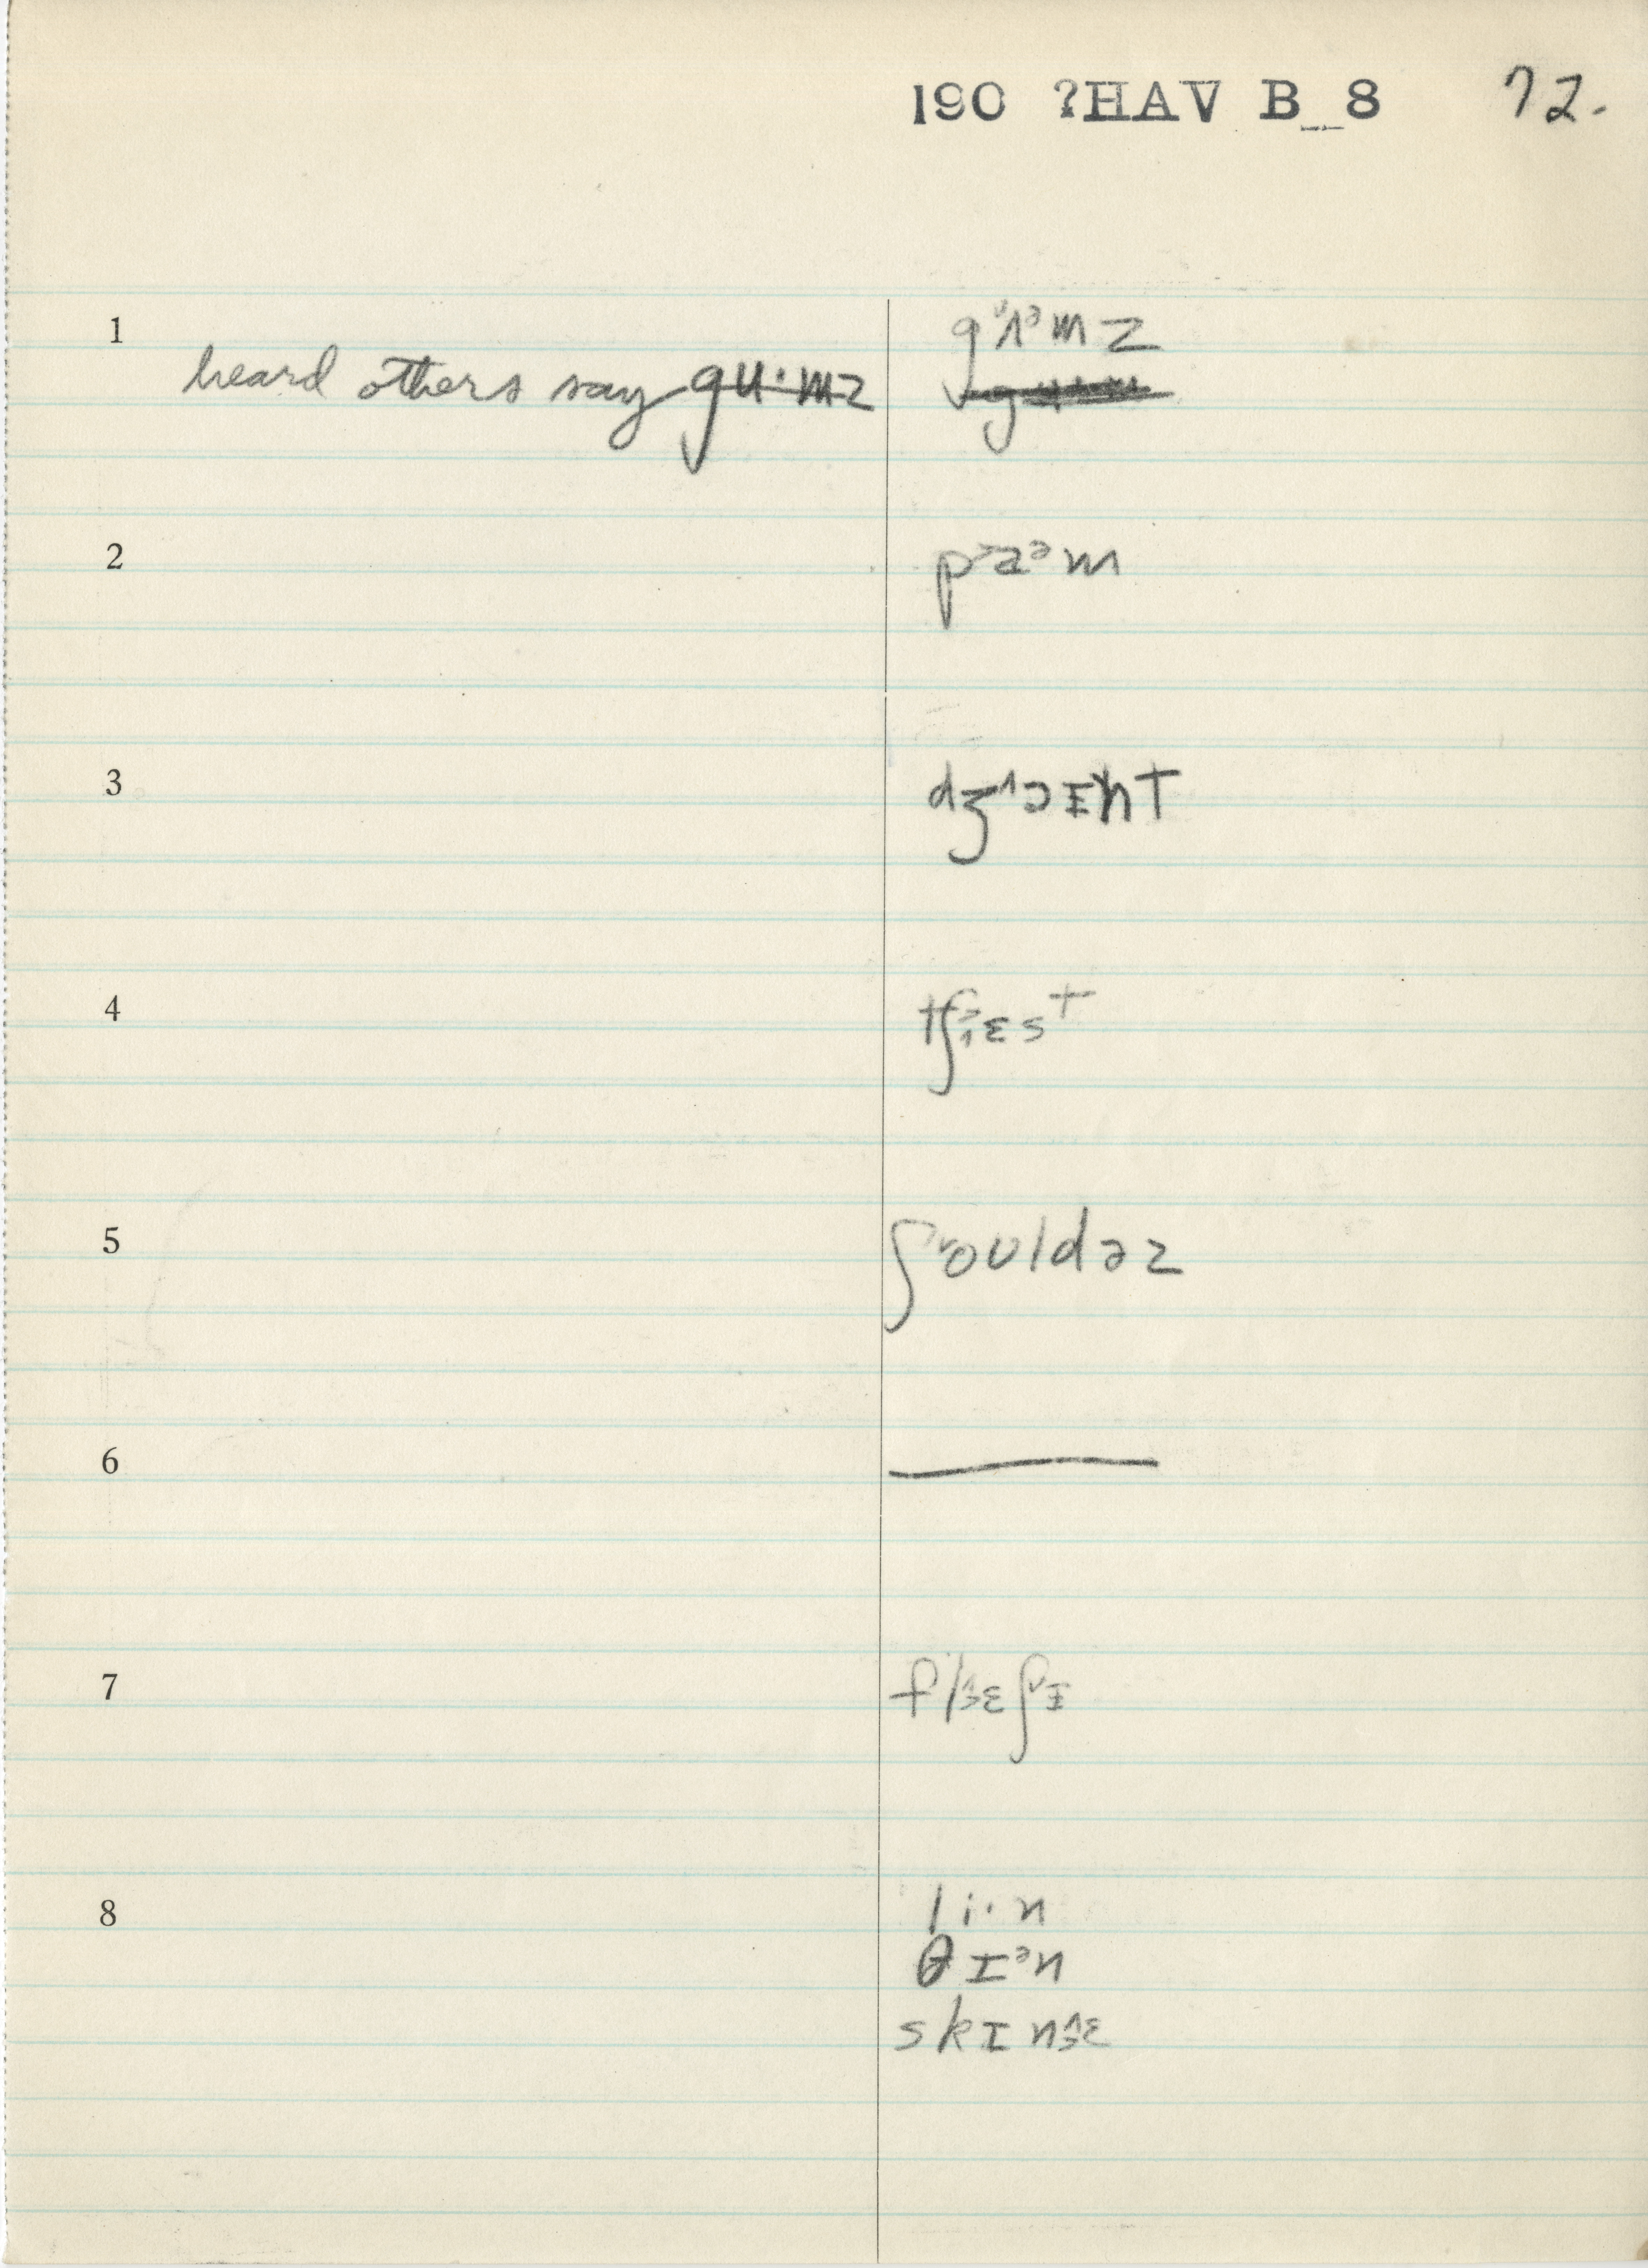 190 ?HAV B_8 72.
1 gᶸʌᵊmz
heard others say gu·mz
2 pᵊaᵊm
3 dʒ˄ɔɪnt
4 tʃ˃˄ɛst
5 ʃ˅oʊldəz
6
7 flɛʃ˅ɪ
8 li·n
θɪᵊn
skɪnɛ